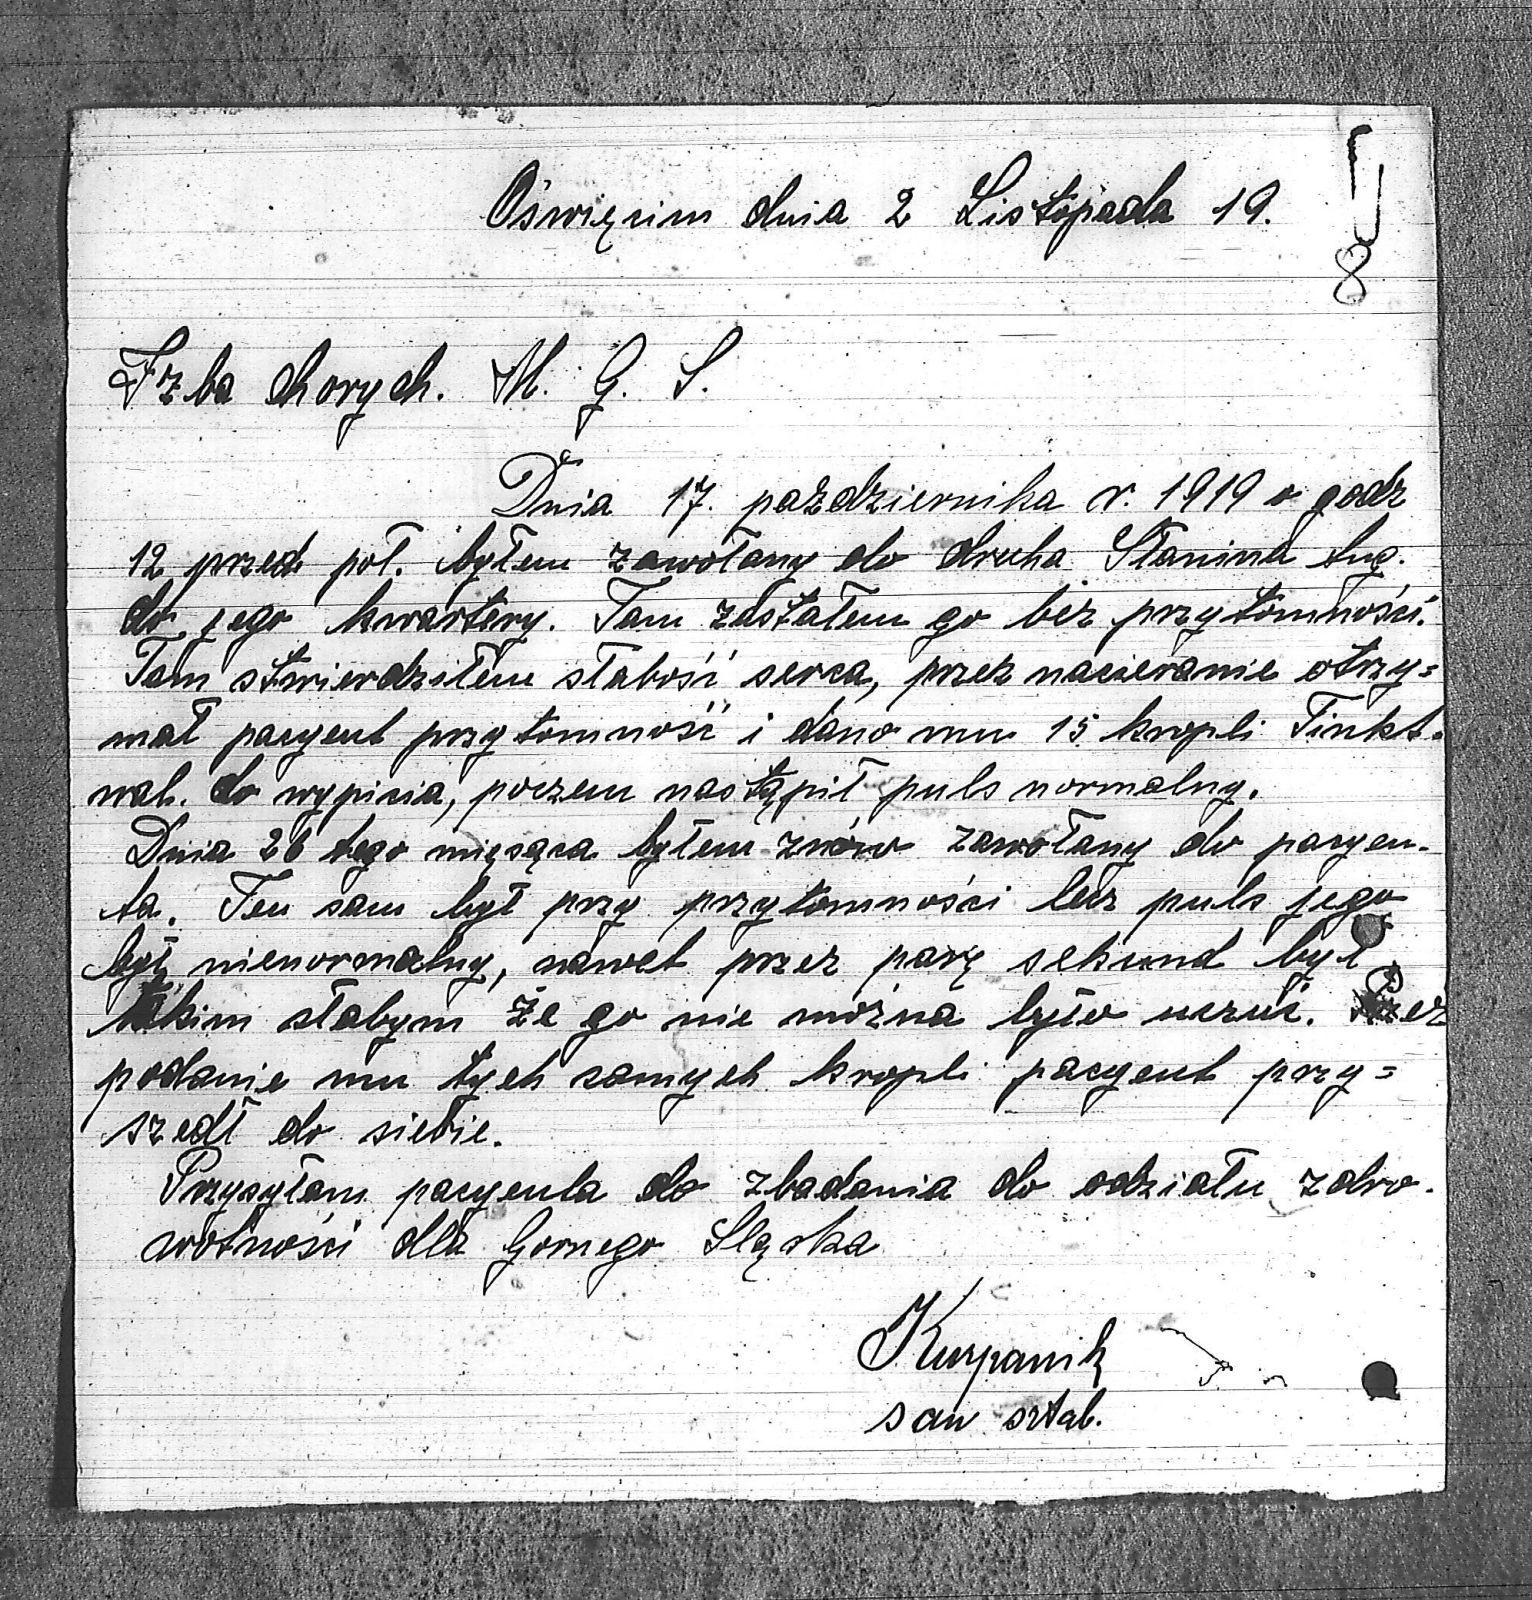 Oświęcim dnia 2 Listopada 19.
8
Izba chorych. M. G. S.
Dnia 17. października r. 1919 o godz
12 przed poł. byłem zawołany do druha Stanina Aug.
do jego kwartery. Tam zastałem go bez przytomności.
Tam stwierdziłem słabość serca, przez nacieranie otrzy=
mał pacyent przytomność i dano mu 15 kropli Tinkt.
wal. do wypicia, poczem nastąpił puls normalny.
Dnia 26 tego mięsąca byłem znów zawołany do pacyen-
ta. Ten sam był przy przytomności lecz puls jego
był nienormalny, nawet przez parę sekund był
takim słabym że go nie można było uczuć. Przez
podanie mu tych samych kropli pacyent przy=
szedł do siebie.
Przysyłam pacyenta do zbadania do odziału zdro-
wotności dla Gornego Sląska
Kurpanik
san sztab.